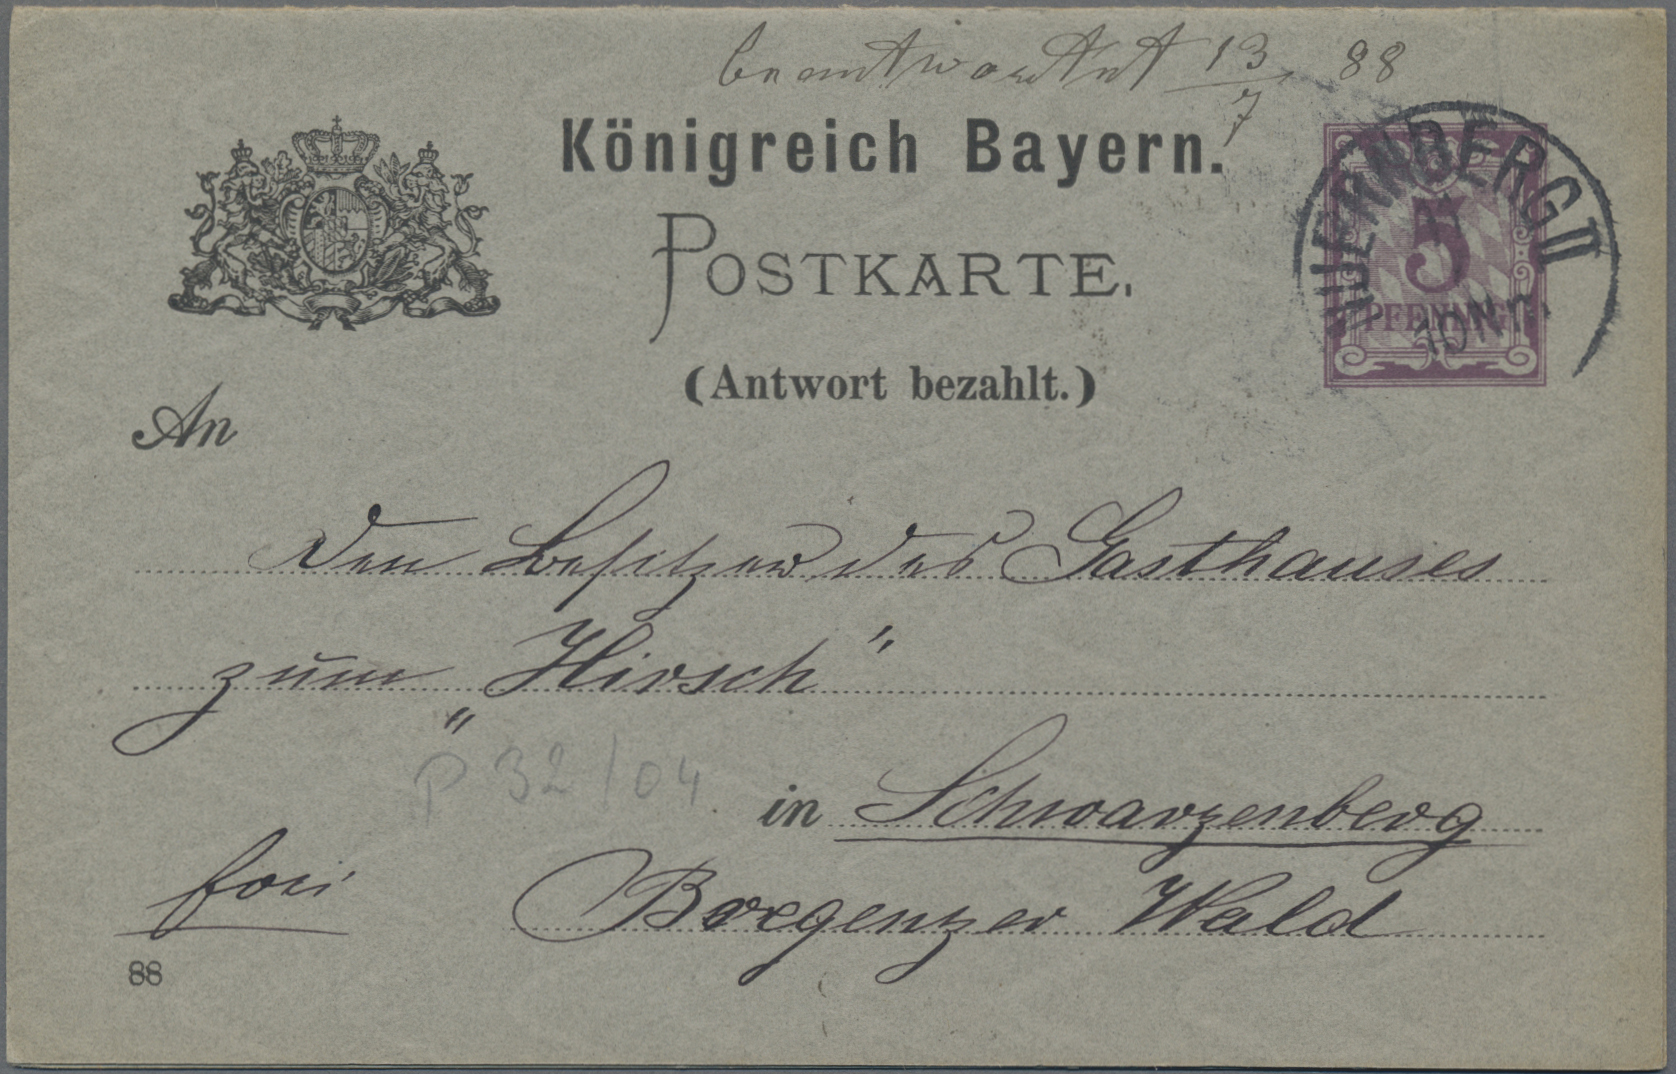 beantwortet 13/7 88
Königreich Bayern.
POSTKARTE.
(Antwort bezahlt.)
NUERNBERG II
5
PFENNIG
An
den Besitzer des Gasthauses
zum „Hirsch“
P 32/04
in Schwarzenberg
frei
Bregenzer Wald
88